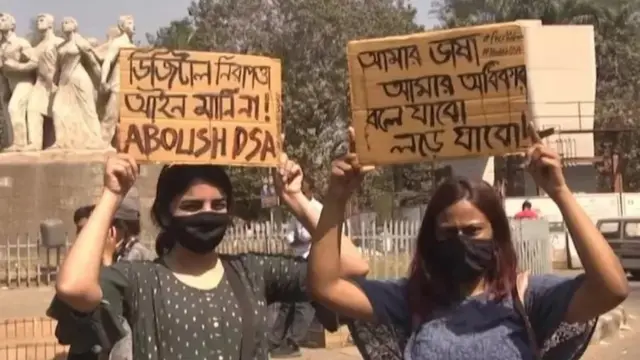 ডিজিটাল নিরাপত্তা
আইন মানি না!
ABOLISH DSA
আমার ভাষা
আমার অধিকার
বলে যাবো
লড়ে যাবো!